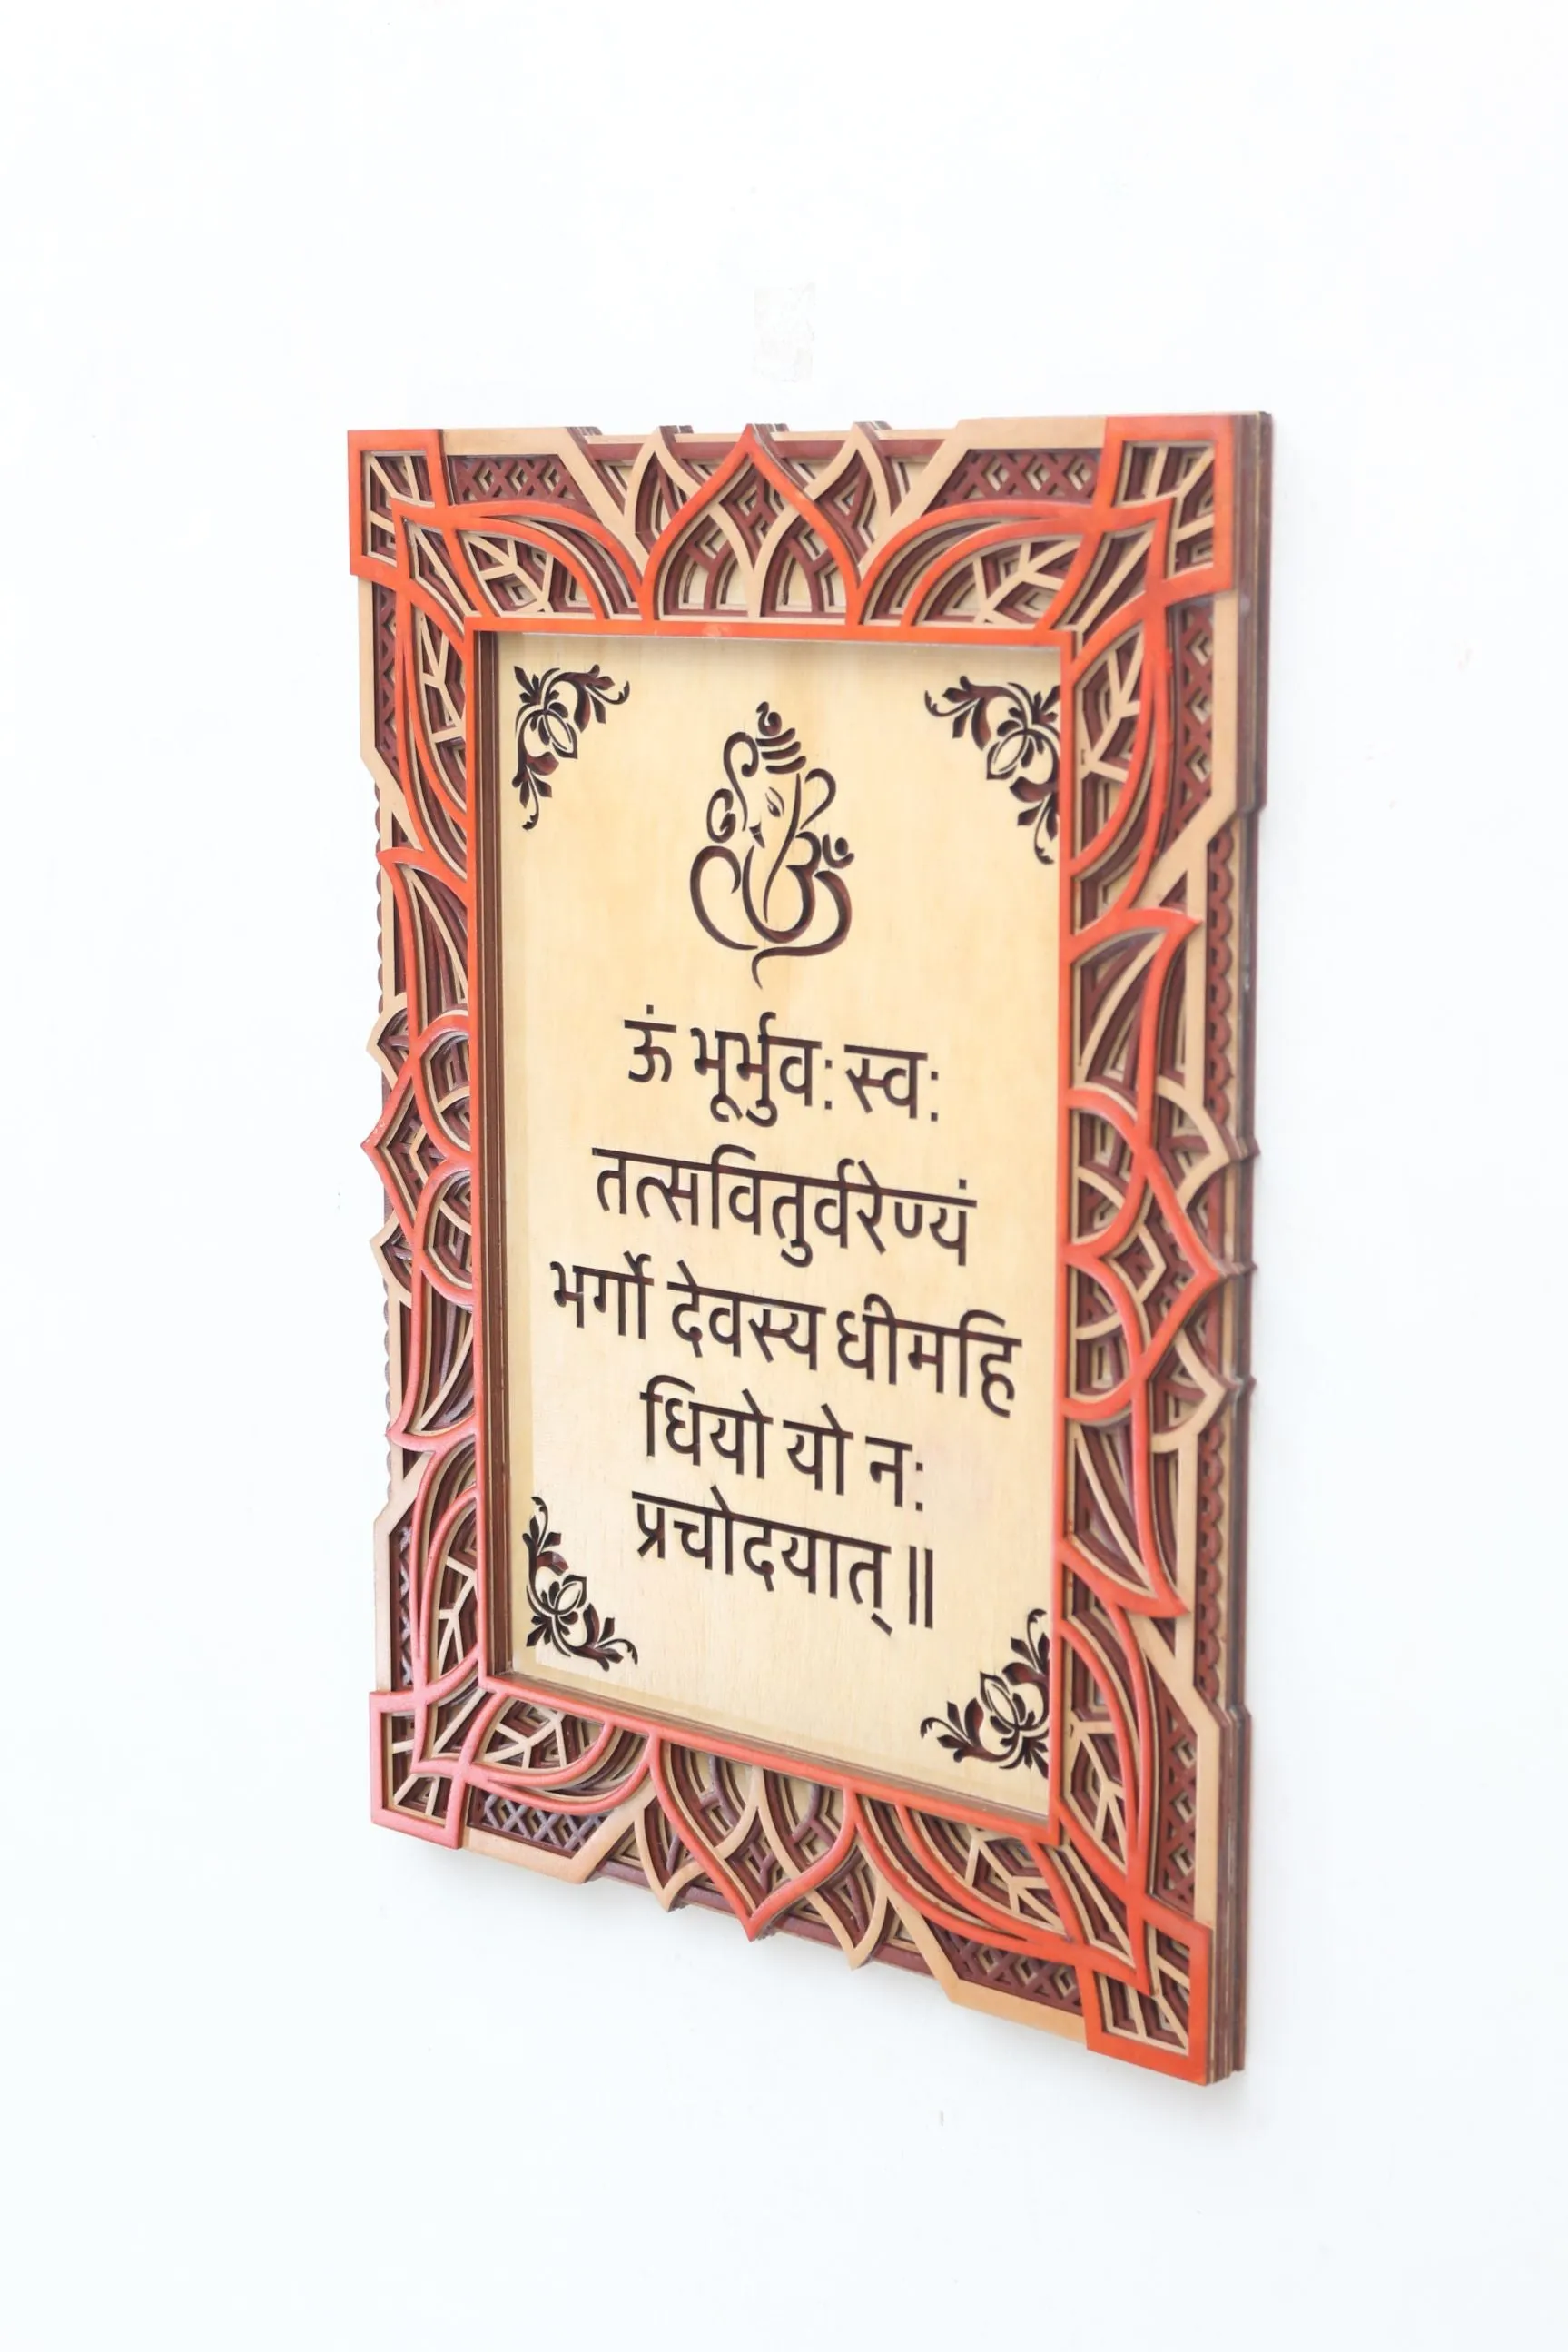 ऊं भूर्भुवः स्वः
तत्सवितुर्वरेण्यं
भर्गो देवस्य धीमहि
धियो यो नः
प्रचोदयात्॥